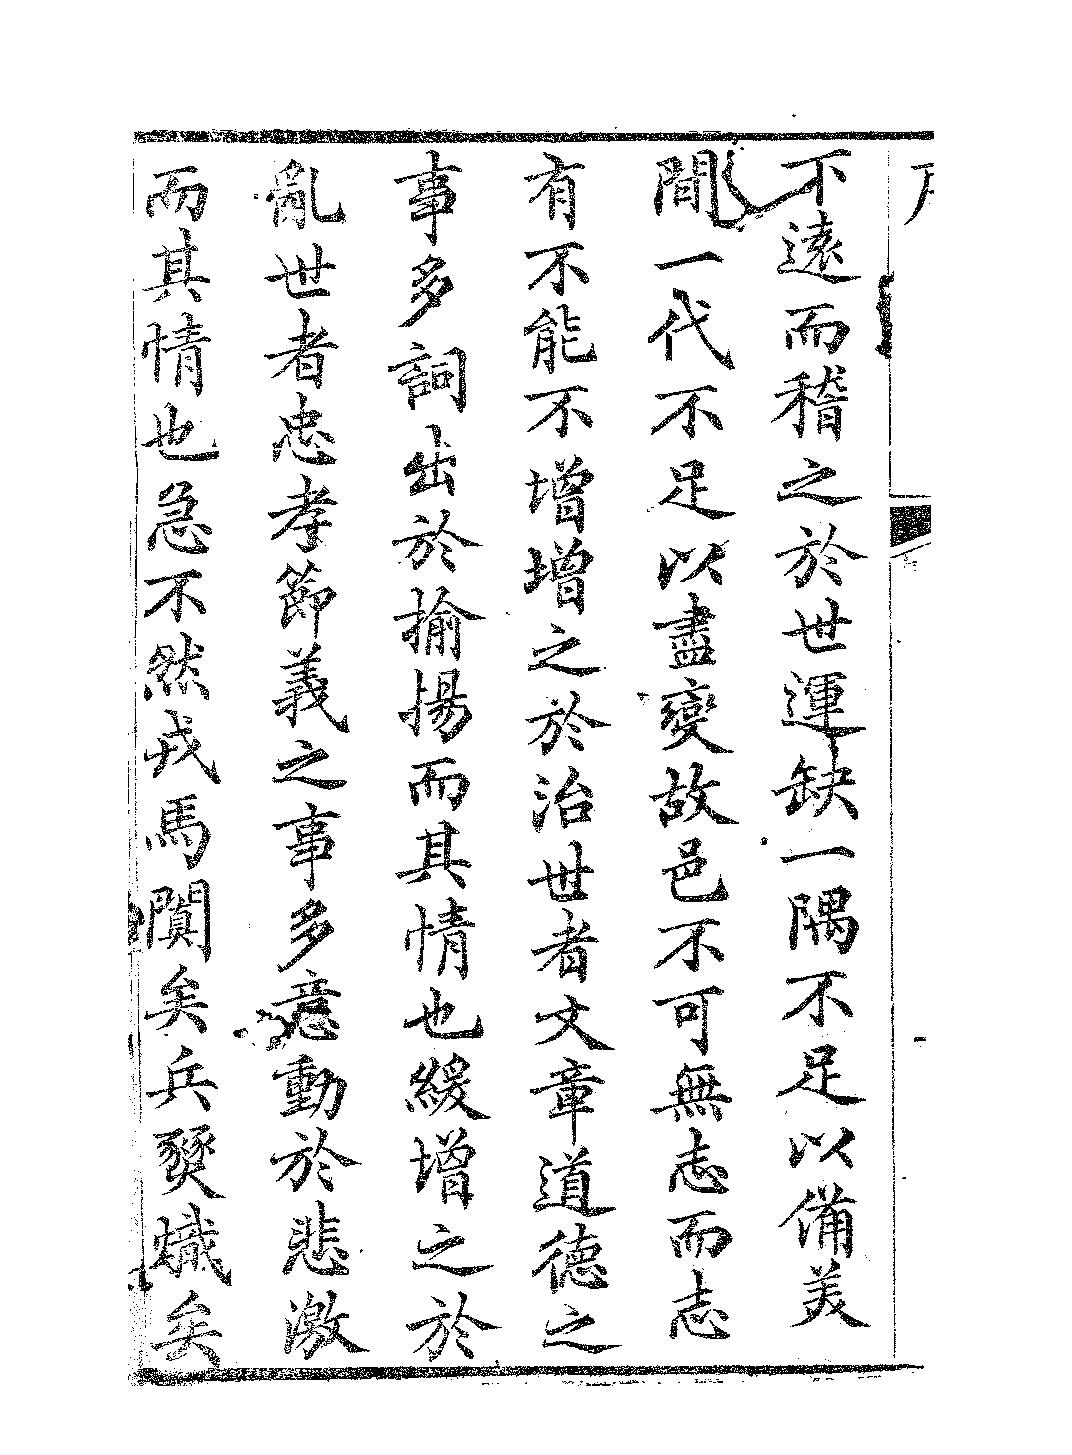 不遠而稽之於世運缺一隅不足以備美
間一代不足以盡變故邑不可無志而志
有不能不增增之於治世者文章道德之
事多詞出於揄揚而其情也緩增之於
亂世者忠孝節義之事多意動於悲激
而其情也急不然戎馬闃矣兵燹熾矣